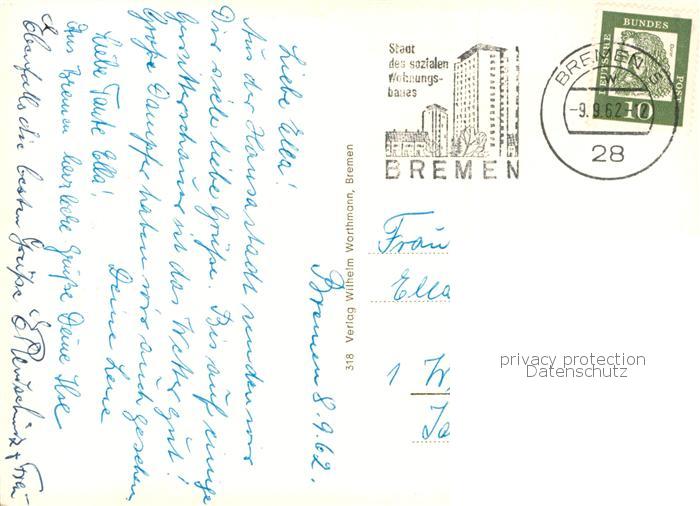 Bremen 8.9.62.
Liebe Ella!
Aus der Hansastadt senden wir
Dir viele liebe Grüße. Bis auf einige
Gewitterschauer ist das Wetter gut!
Große Dampfer haben wir auch gesehen.
Deine Lene
Liebe Tante Ella!
Aus Bremen herzliche Grüße Deine Ilse
Ebenfalls die besten Grüße
318 Verlag Wilhelm Worthmann, Bremen
Stadt
des sozialen
Wohnungs-
baues
BREMEN
BREMEN 5
W
-9.9.62-
28
DEUTSCHE BUNDESPOST
10
Frau
Ella
1
privacy protection
Datenschutz